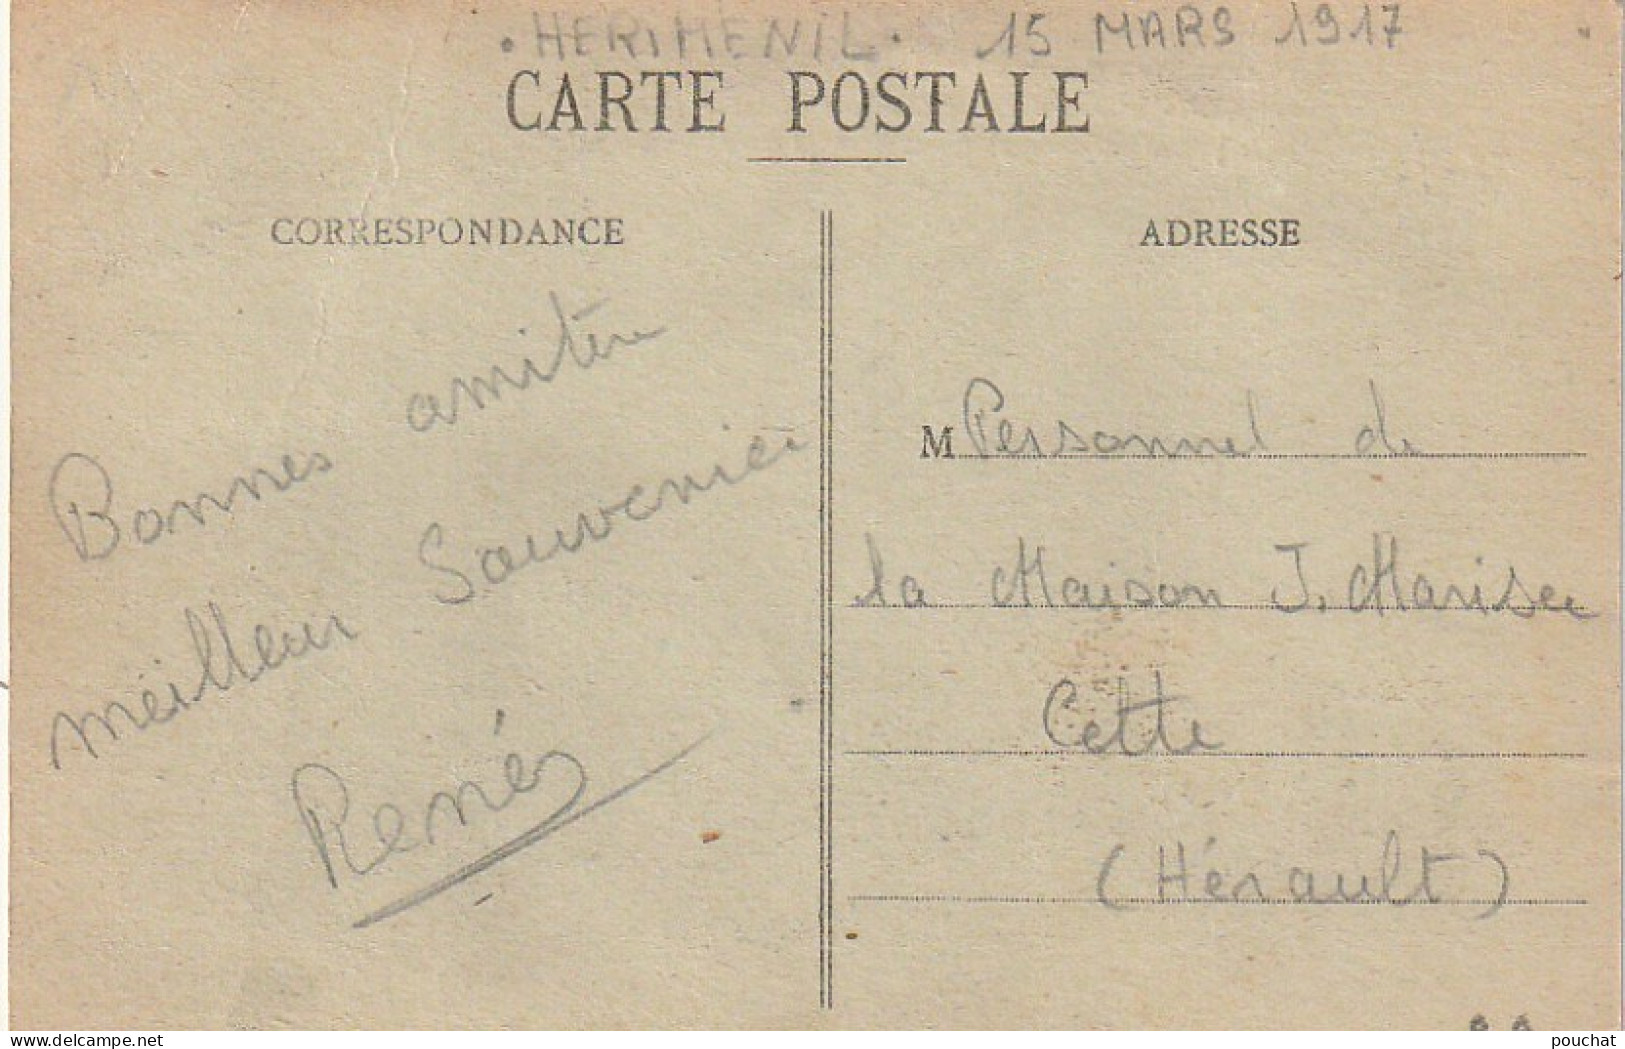 . HERIMENIL . 15 MARS 1917
CARTE POSTALE
CORRESPONDANCE
Bonnes amitiés
meilleur Souvenir
René
ADRESSE
M Personnel de
la Maison J. Marisee
Cette
(Hérault)
delcampe.net
pouchat